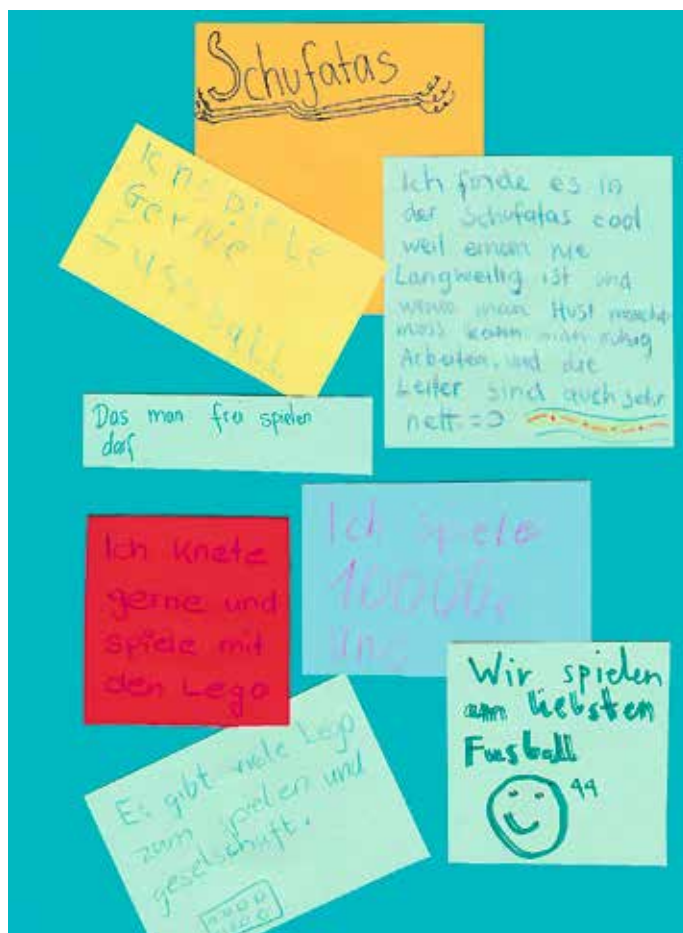 Schufatas
Ich spiele
Gerne
Fussball
Ich finde es in
der Schufatas cool
weil einem nie
Langweilig ist und
wenn man
muss kann man ruhig
Arbeiten, und die
Leiter sind auch sehr
nett =)
Das man frei spielen
darf
Ich knete
gerne und
spiele mit
den Lego
Ich spiele
Wir spielen
am liebsten
Fussball
Es gibt viele Lego
zum spielen und
geselschaft.